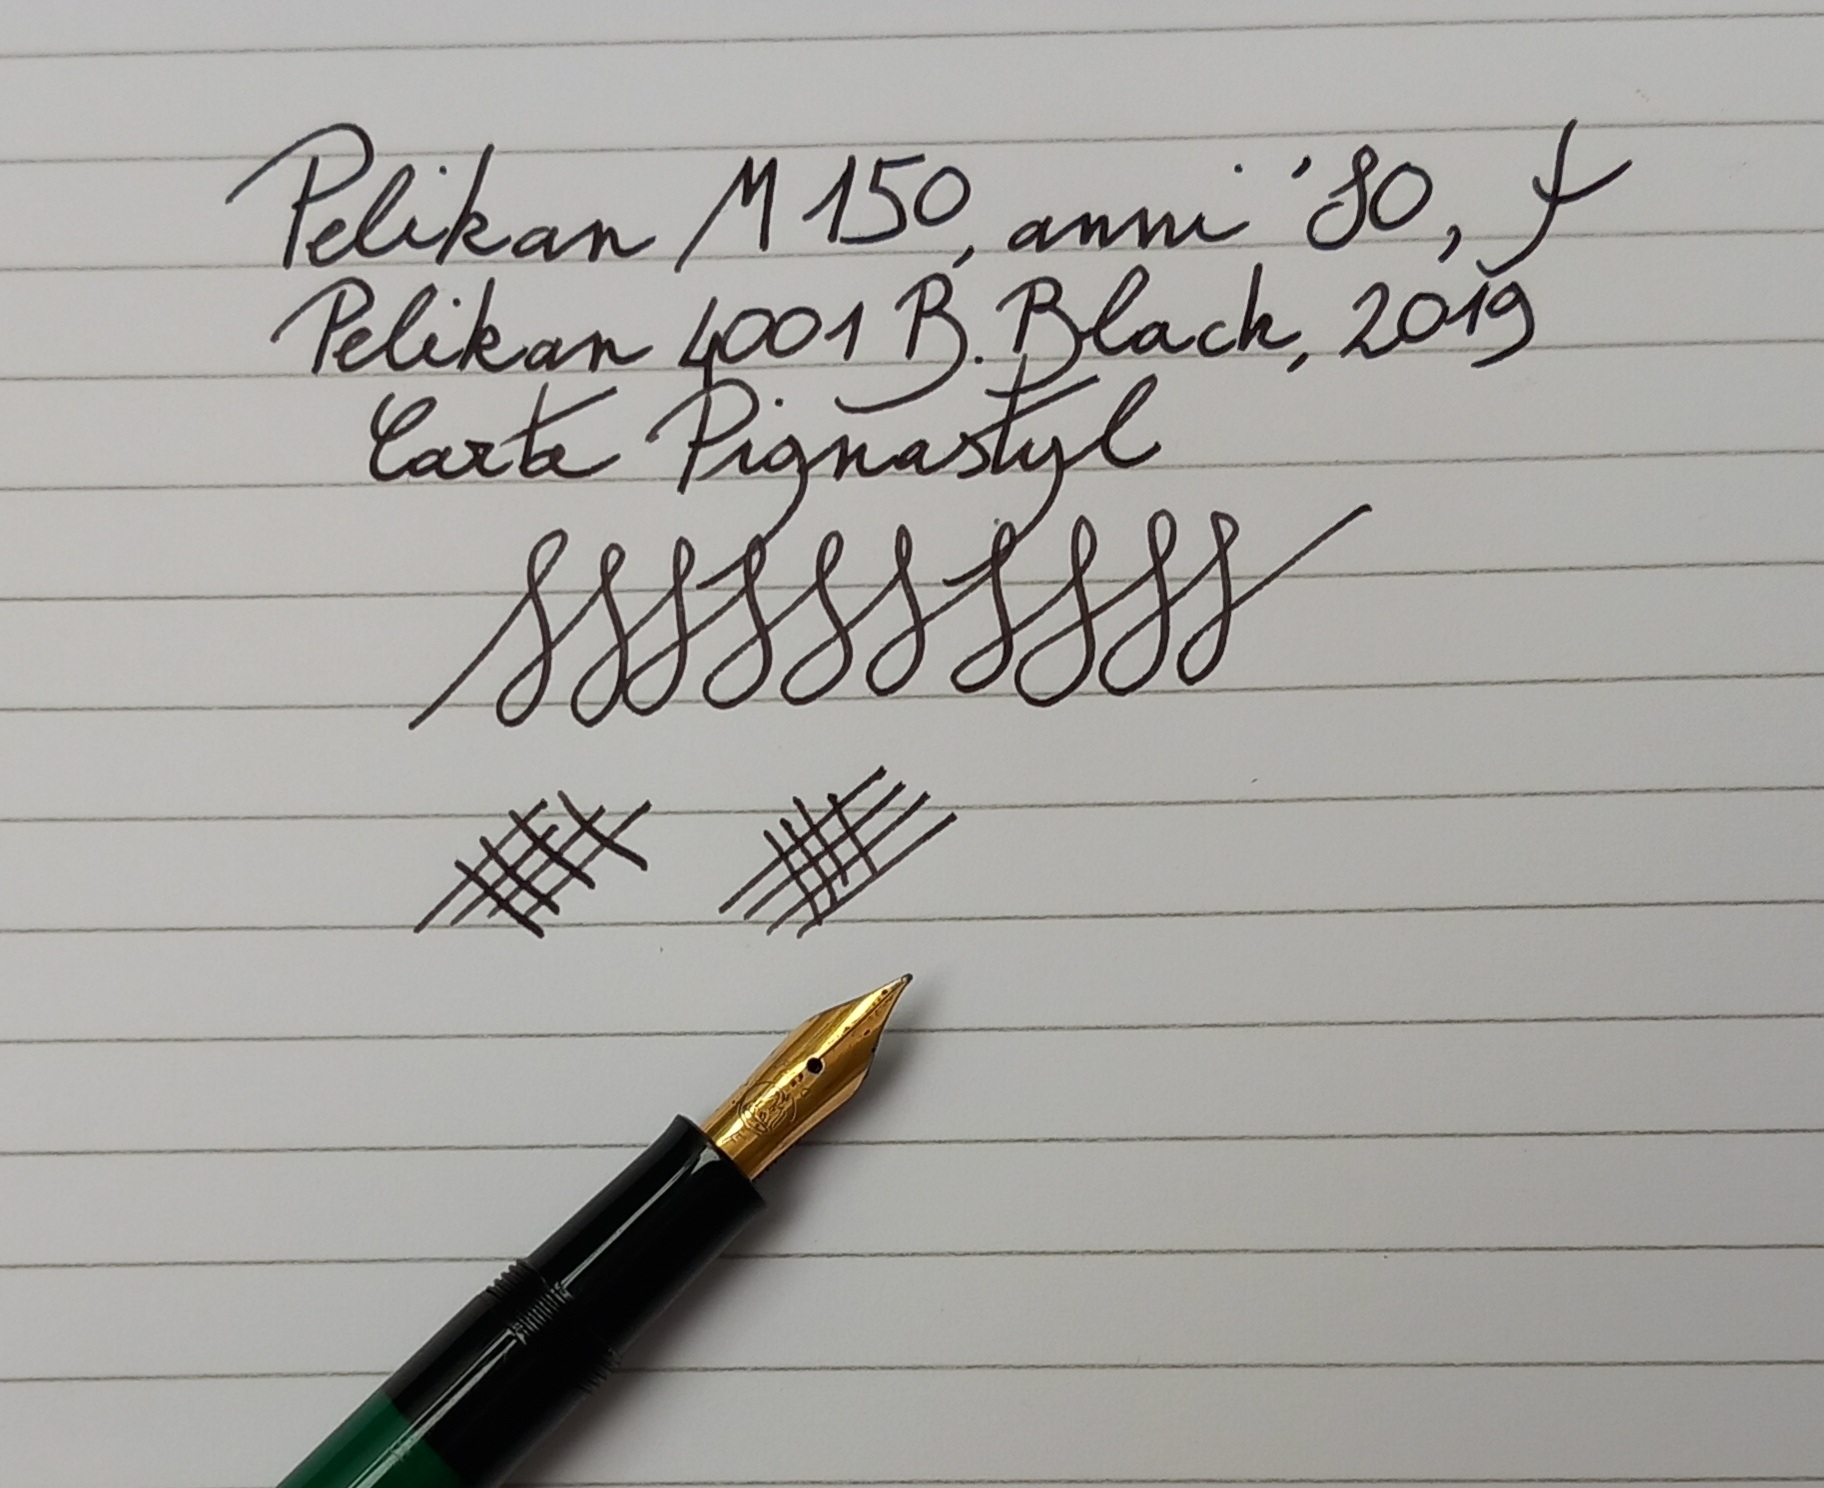 Pelikan M150, anni '80, F
Pelikan 4001 B. Black, 2019
Carte Pignastyl